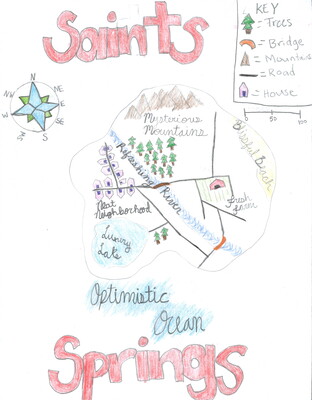 Saints
KEY
= Trees
= Bridge
= Mountains
= Road
= House
0 50 100
N
NE
E
SE
S
SW
W
NW
Mysterious
Mountains
Blissful Beach
Refreshing River
Neat
Neighborhood
Fresh
Farm
Luxury
Lake
Optimistic
Ocean
Springs